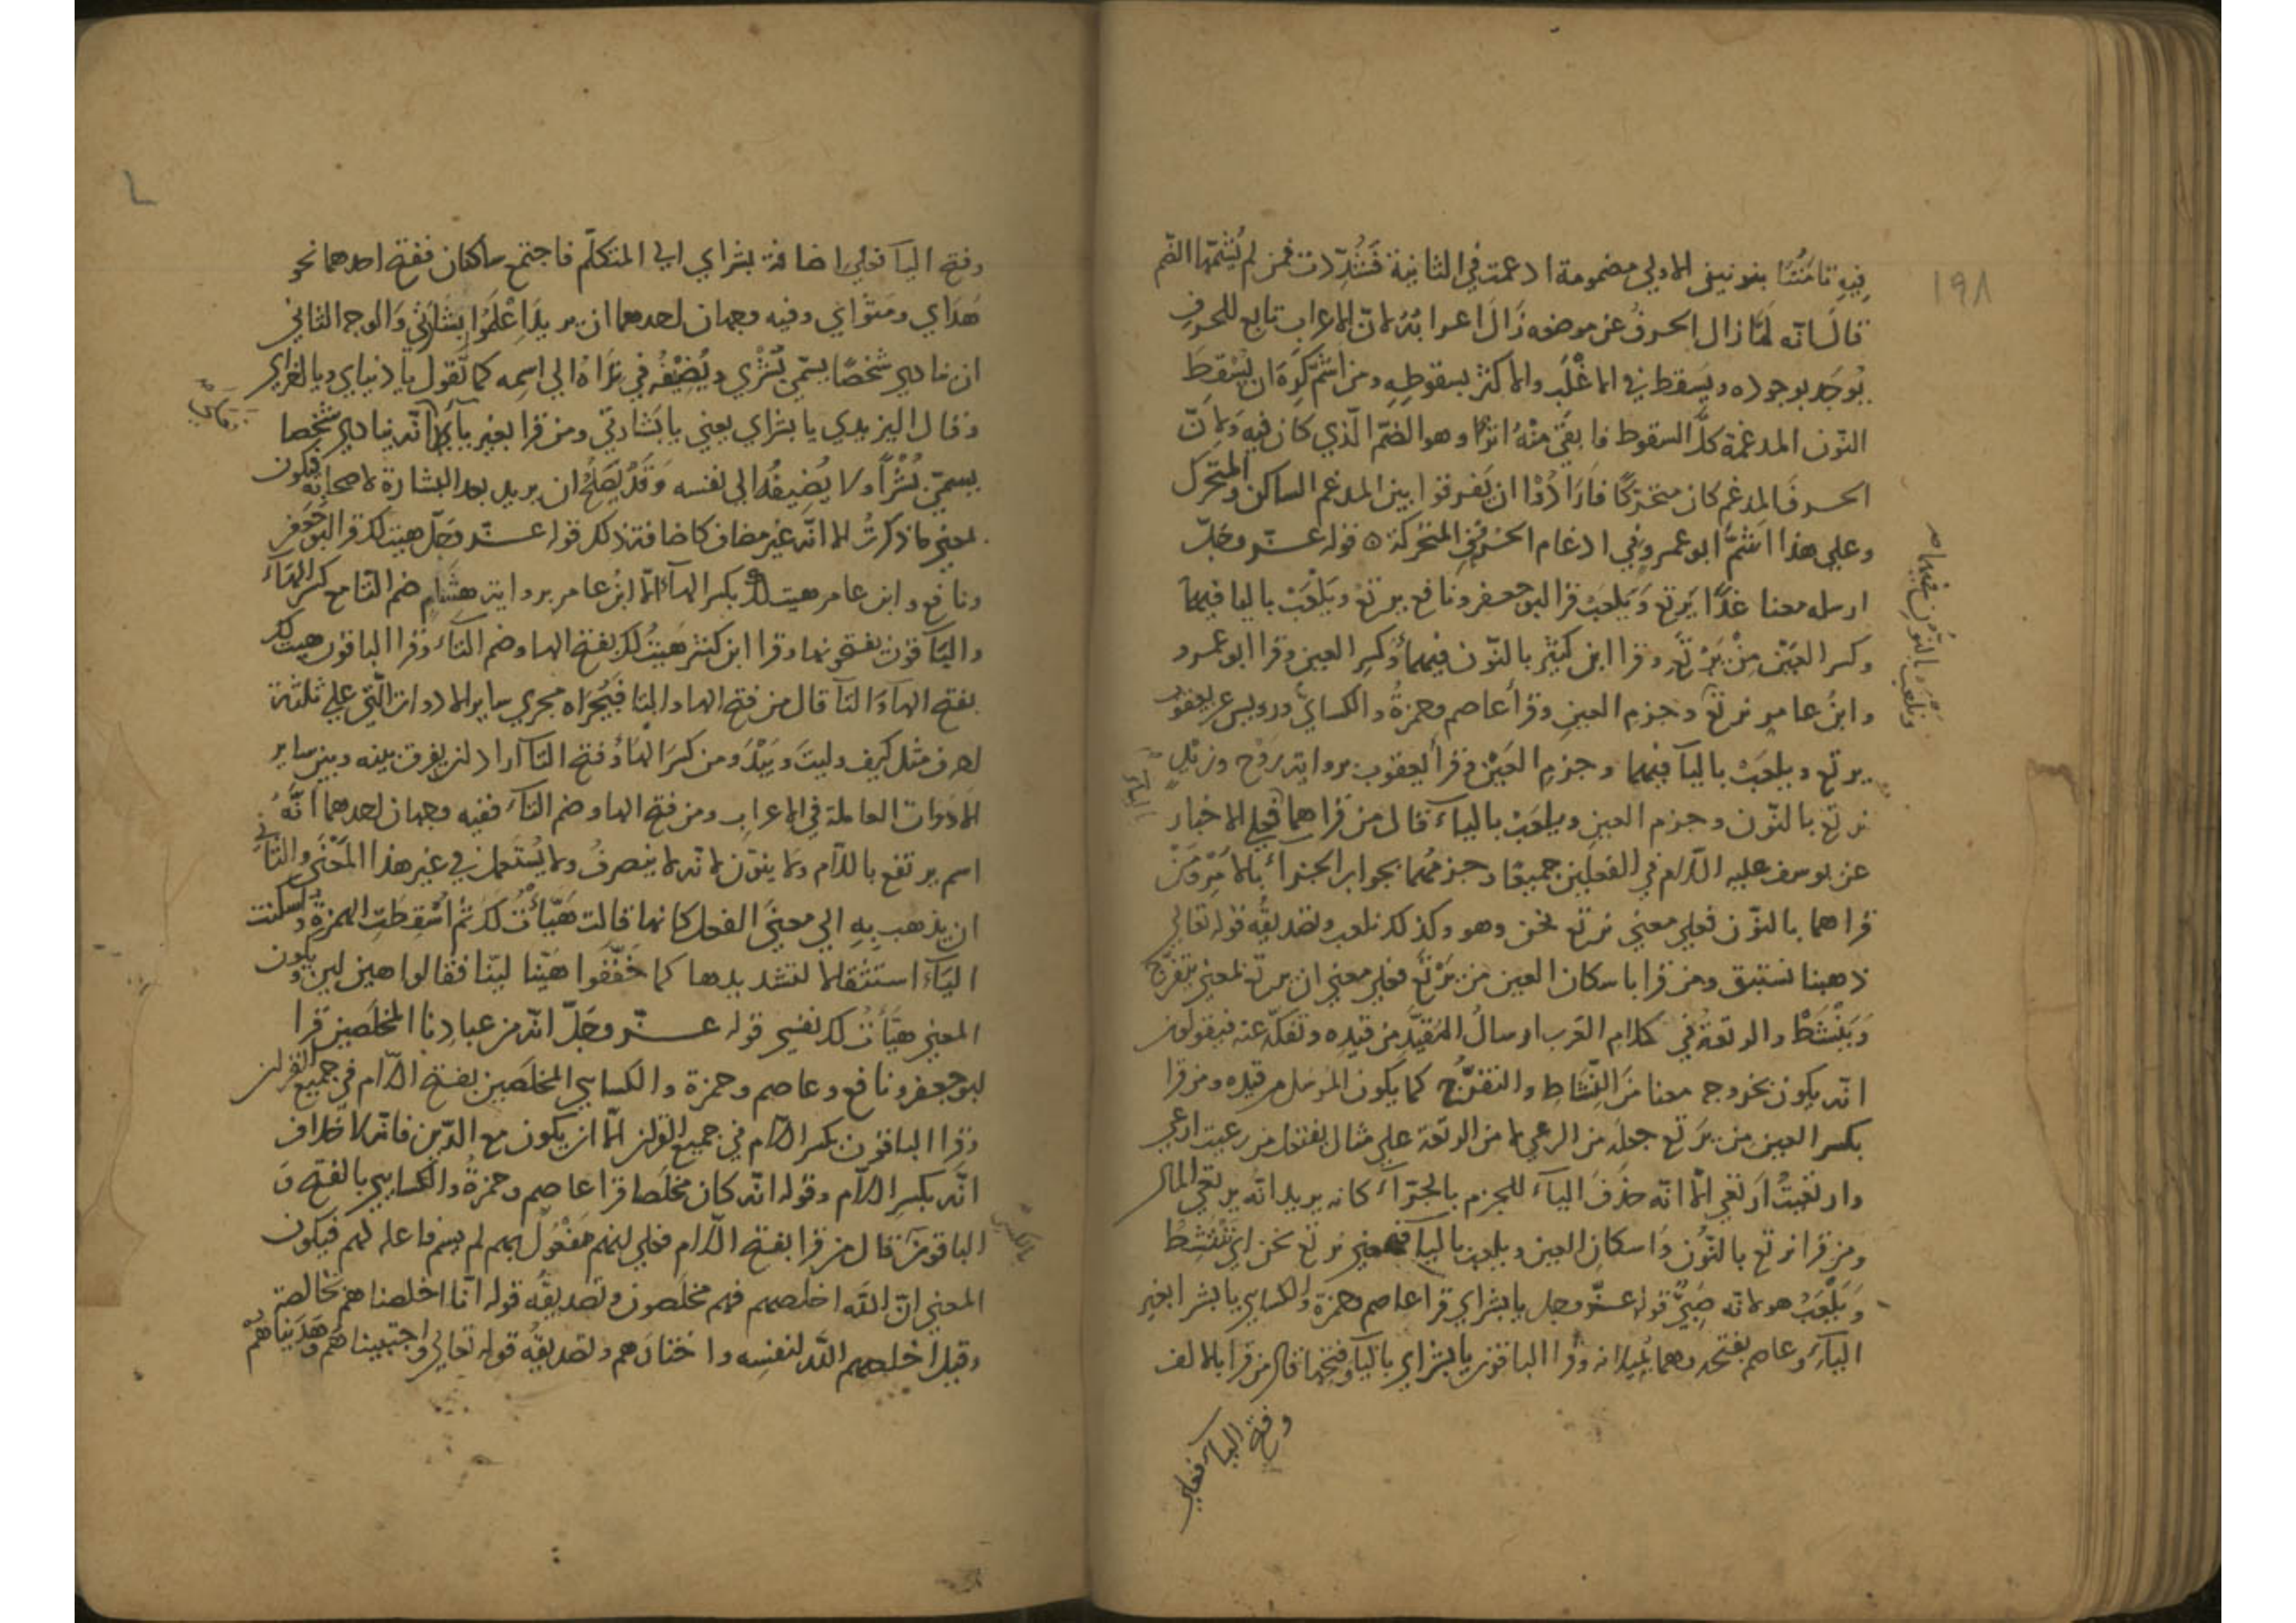 ١٩٨
فِيهِ تامَنُنا بنونين الاولي مضمومة ادغمت في الثانية فشُدِّدت فمن لم يُشمّها الضّم
قال انّه لمّا زال الحرفُ عن موضعه زَالَ اعرابُهُ لانّ الاعراب تابع للحروفِ
يُوجَد بوجوده ويسقط في الاغْلَب والاكثر بسقوطِهِ ومن اشمّ كَرِهَ ان يُسْقِطَ
النّون المدغمة كلَّ السقوط فابقَي مِنْهُ اثرًا وهو الضّم الّذي كان فيه ولانّ
الحرفَ المدغم كان متحرّكًا فارَادُوْا ان يَفرقوا بين المدغم الساكن والمتحرّك
وعلي هذا اشمَّ ابو عمرو في ادغام الحروف المتحركة ٥ قوله عزّ وجَلّ
ارسله معنا غدًا يَرتع وَيَلعب قرا ابو جعفر ونافع يرتعِ ويَلْعَبْ باليا فيهما
وكسر العَيْن مِنْ يَرْتَعِ وقرا ابن كثير بالنّون فيهما وَكسر العين وقرا ابو عمرو
ونَلعَب بالنّون فيهما
وابنُ عامر نرتَعْ وجزم العين وقرأ عاصم وحمزةُ والكسائي ورويس عن يعقوب
يرتع ويلعَبْ باليآ فيهما وجزم العَيْن وقرأ يعقوب بروايةِ رَوْح وزيدٍ
نرتع بالنّون وجزم العين ويلعَبْ بالياء قال من قراهما فعلي الاخبار
بالياء
عن يوسف عليه السّلام في الفعلَين جميعًا وجزمهُمَا بجواب الجزاء بالامْر وَمَنْ
قراهما بالنّون فعلي معني نرتع نحن وهو وكذلك نلعب وتصديقُه قوله تعالي
ذهبنا نستبق ومن قرا باسكان العين من يَرْتَعْ فعلي معني ان يرتع بمعني يتفرّج
وَيَنْشَطْ والرتعةُ في كلام العَرب ارسالُ المُقيَّدِ من قيده وتفكّه عنه فيقول
انّه يكون بخروجه معنا مَنَ النَّشَاطِ والتفرُّج كما يكون المُرسَل من قيده ومن قرا
بكسر العين من يَرتع جعلَه من الرعي لا من الرتعة علي مثال يفتعل من رعيت ارعي
وارتَعَيتُ اَرتعي الّا انّه حذَفَ الياء للجزم بالجزآء كانه يريد انّه يرتعي المال
ومن قرا نرتع بالنُّون وَاسكان العين ويلعب باليا فمعني نرتع نحن اي نَنْشَطُ
وَيَلْعَبُ هو لانّه صَبِيٌّ قوله عزّ وجل يا بشراي قرا عاصم وحمزة والكسائي يا بشرا بغير
الياء وعاصم يفتحه وهما يُميلانه وقرا الباقون يا بشراي بالياء وفتحها قال من قرا بالالف
وفتح الياء فعلي
وفتح اليآ فعلي اضافة بشراي الي المتكلّم فاجتمع ساكنان ففتح احدهما نحو
هُدَاي ومَثوَاي وفيه وجهان احدهما ان يريدَ اعْلَمُوا بِشَارَتي وَالوجه الثاني
ان ينادي شخصًا يسمّي بُشْري ويُضِيْفُه في نِدَاهُ الي اسمِه كما تَقول يا دنياي ويا لغراي
وقال اليزيدي يا بشراي يعني يا بشارتي ومن قرا بغير يآء فانّه ينادي شخصا
يسمّي بُشْرًا ولا يُضِيفُه الي نفسه وَقَدْ يَصْلُحُ ان يريد بعد البشارة لاصحابه فيكون
بمعني ما ذكرتُ الا انّه غير مضاف كاضافة ذلك قوله عزّ وجَلّ هيت لك قرا ابو جعفر
ونافع وابن عامر هيت لك بكسر الهآء الّا ابنُ عامر بروايةِ هشَامٍ ضم التا مع كسر الهآء
والبَاقون يفتحونها وقرا ابن كثير هَيتُ لك بفتح الها وضم التاء وقرا الباقون هيت لك
بفتح الهآ وَالتآ قال من فتح الها والتا فيُجرَاه مجري ساير الادوات الّتي علي ثلثة
احرف مثل كيف وليتَ وَبَيْدَ ومن كسَرَ الهَاء وفتح التآ اراد ان يفرق بينه وبين ساير
الادَوات العاملة في الاعراب ومن فتح الها وضم التآء ففيه وجهان احدهما انَّهُ
اسم يرتفع باللّام ولا ينوّن لانّه لا ينصرفُ ولا يُستعمل في غير هذا المَعْنَي والثاني
ان يذهب بِهِ الي معنَي الفعل كانها قالت هَيّأْتُ لكَ ثمّ اسْقِطَتِ الهمزة واسكنت
اليآءُ استثقالا لتشديدها كما خَفَّفُوا هَيّنا ليّنا فقالوا هين لين ويكون
المعني هيَّأتُ لك نفسي قوله عزّ وجَلّ انّه من عبادنا المُخلَصين قرا
ابو جعفر ونافع وعاصم وحمزة والكسايي المخلَصين بفتح اللّام في جميع القران
وقرا الباقون بكسر اللّام في جميع القران الّا ان يكون مع الدّين فانّه لا خلاف
انَّه بكسر اللّام وقوله انّه كان مخلَصا قرا عاصم وحمزةُ والكسايي بالفتح وَ
الباقون قال من قرا بفتح اللّام فعلي انهم مَفْعُولٌ بهم لم يسم فاعله لهم فيكون
بالكسر
المعني انّ اللّه اخلصهم فهم مخلَصون وتصديقُه قوله انّا اخلصناهم بخالصة
وقيل اخلصهم اللّه لنفسِه واختارَهم وتصديقُه قوله تعالي واجتبيناهم وهَدَيناهم